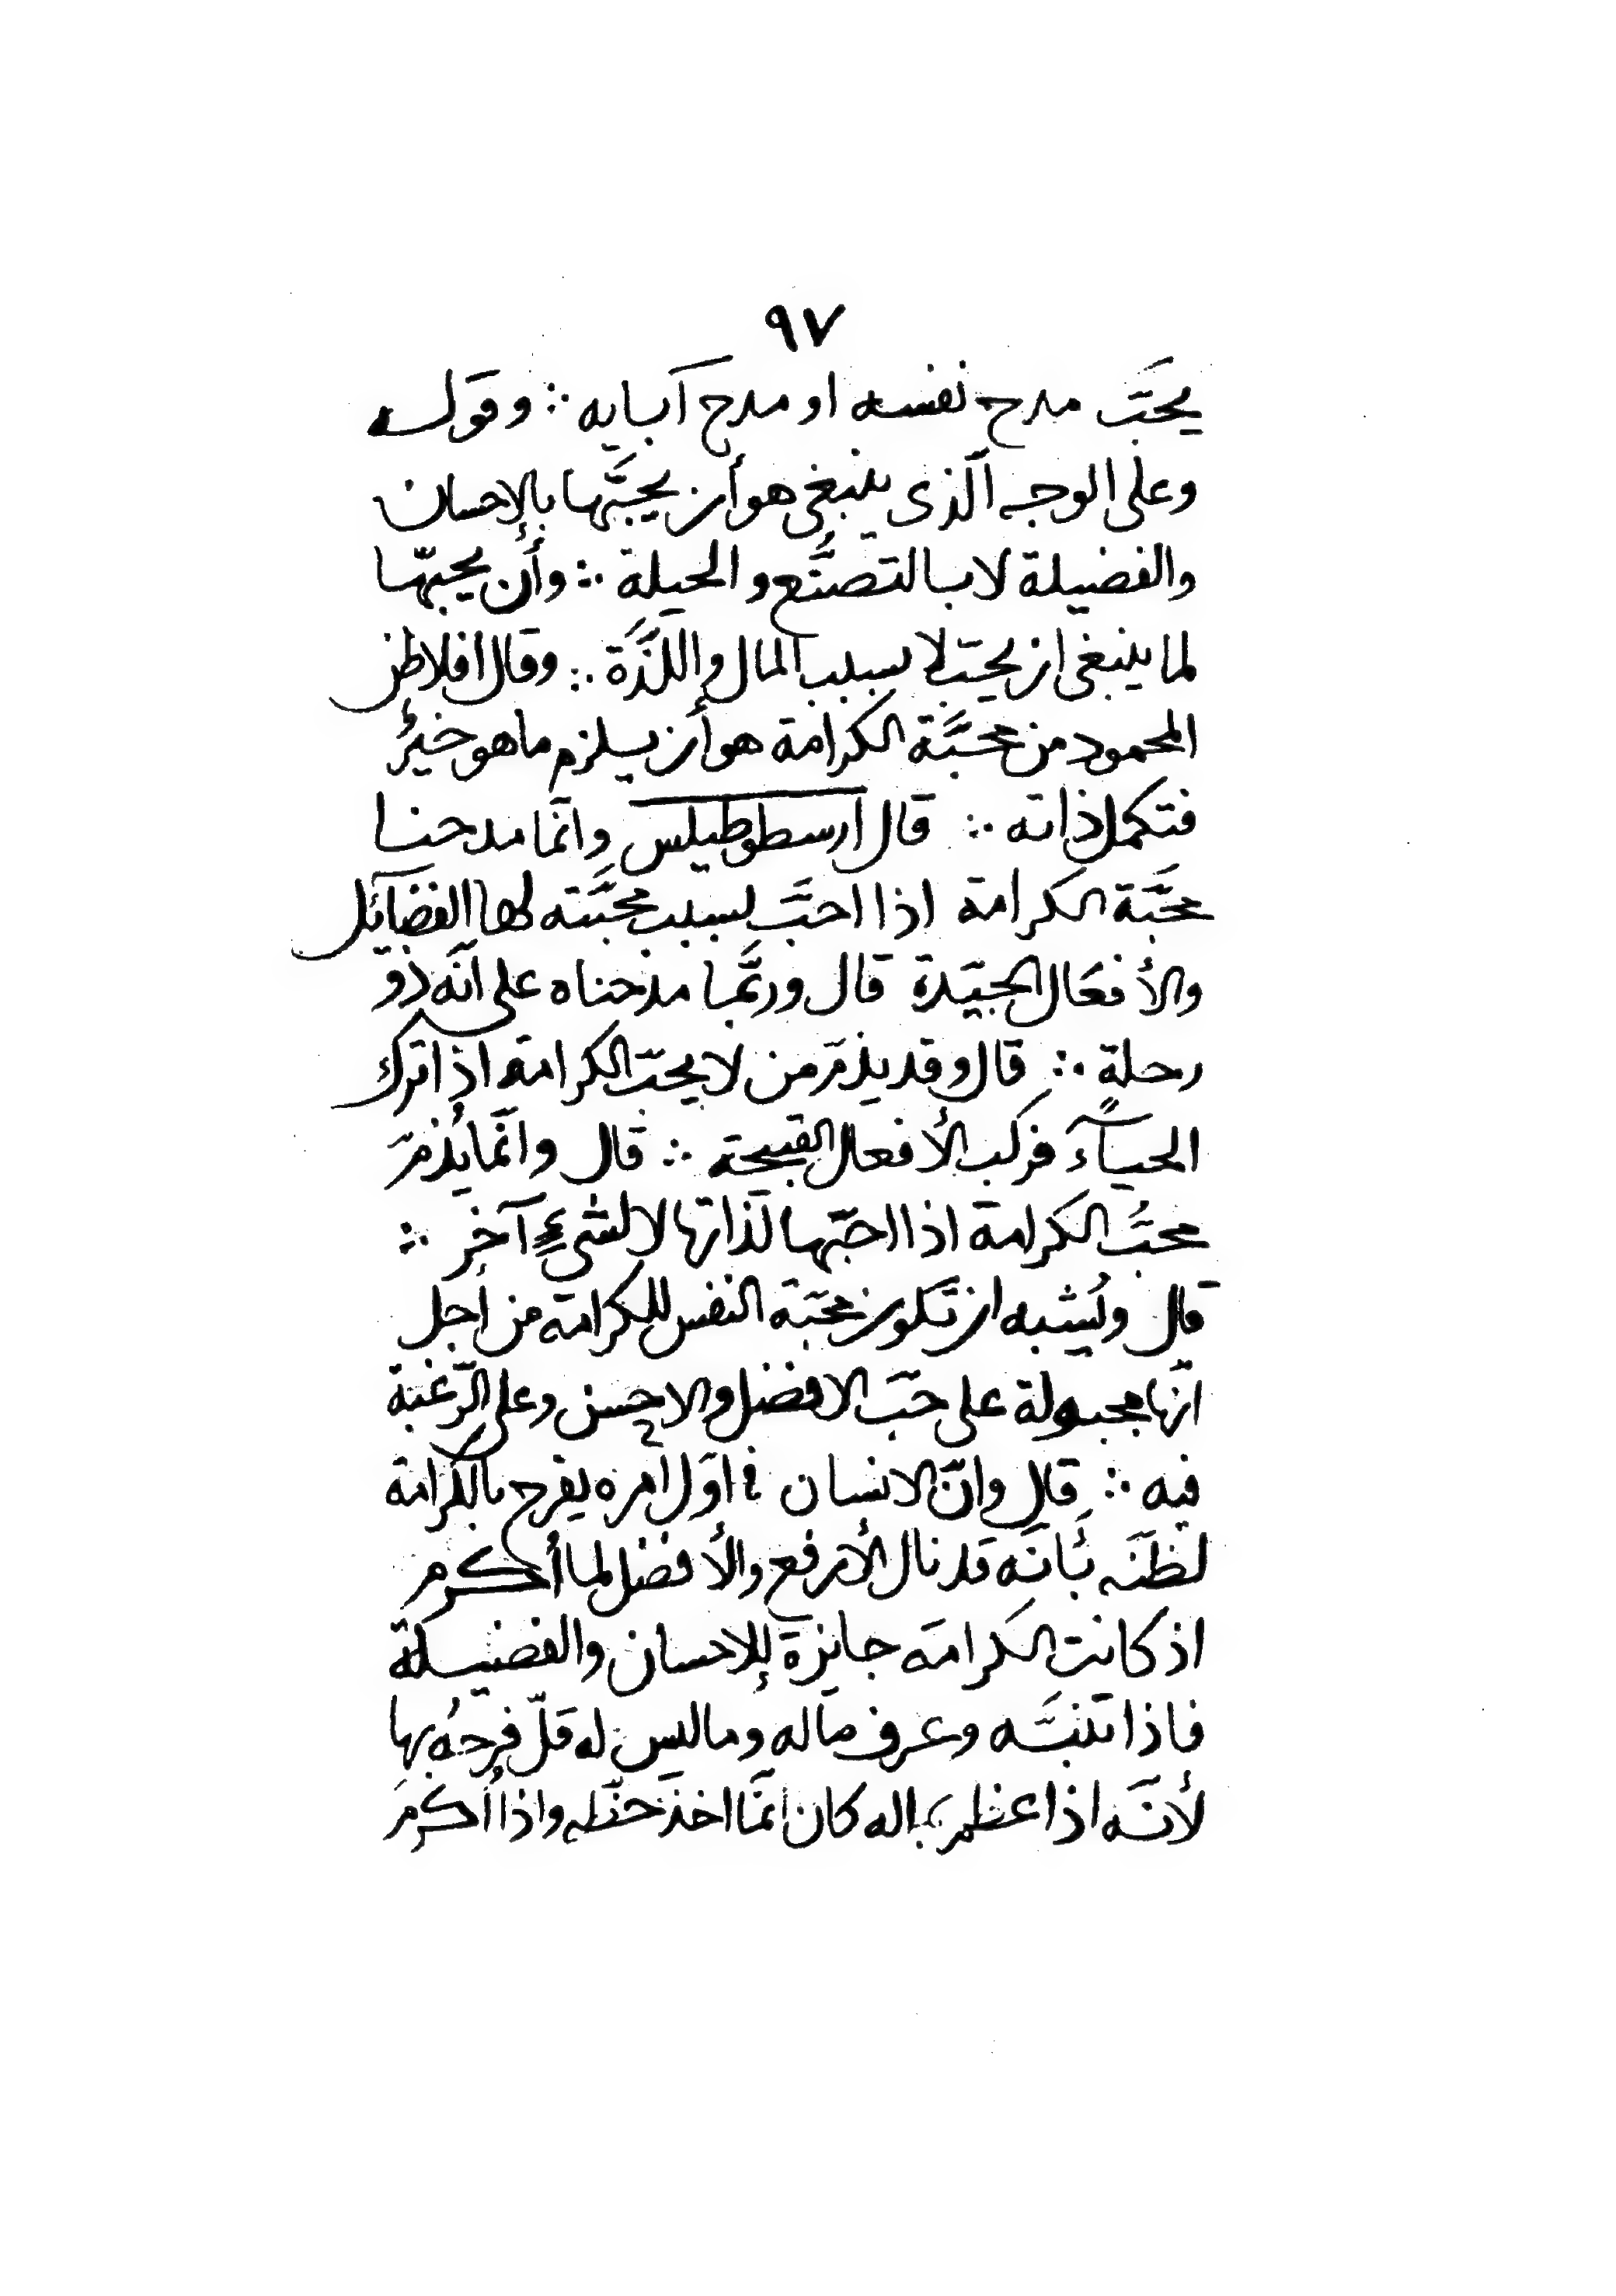 ٩٧
يحبّ مدح نفسه او مدح آبايه ∴ وقوله
وعلى الوجه الّذى ينبغى هو أن يحبَّها بالإحسان
والفضيلة لا بالتصنُّع والحيلة ∴ وأن يحبّها
لما ينبغى ان يحبّ لا بسبب المال واللّذَّة ∴ وقال افلاطن
المحمود من محبَّة الكرامة هو أن يلزم ما هو خيرٌ
فتكمل ذاته ∴ قال ارسطوطيلس وانّما مدحنا
محبّة الكرامة اذا احبَّ بسبب محبَّته لها الفضآئل
والأفعال الجيّدة قال وربَّما مدحناه على انّه ذو
رحلة ∴ قال وقد يذمّ من لا يحبّ الكرامة اذا ترك
الحيآء فركب الأفعال القبيحة ∴ قال وانّما يُذمّ
محبّ الكرامة اذا احبّها لذاتها لا لشىءٍ آخر ∴
قال ويُشبه ان تكون محبّة النفس للكرامة من أجل
انّها مجبولة على حبّ الافضل والاحسن وعلى الرّغبة
فيه ∴ قال وانّ الانسان فى اوّل امره يفرح بالكرامة
لظنّه بأنّه قد نال الأرفع والأفضل لما أكرم
اذ كانت الكرامة جايزة للإحسان والفضيلة
فاذا تنبَّه وعرف ما له وما ليس له قلّ فرحُه بها
لأنّه اذا عظم بما له كان انّما اخذ حظّه واذا أكرم